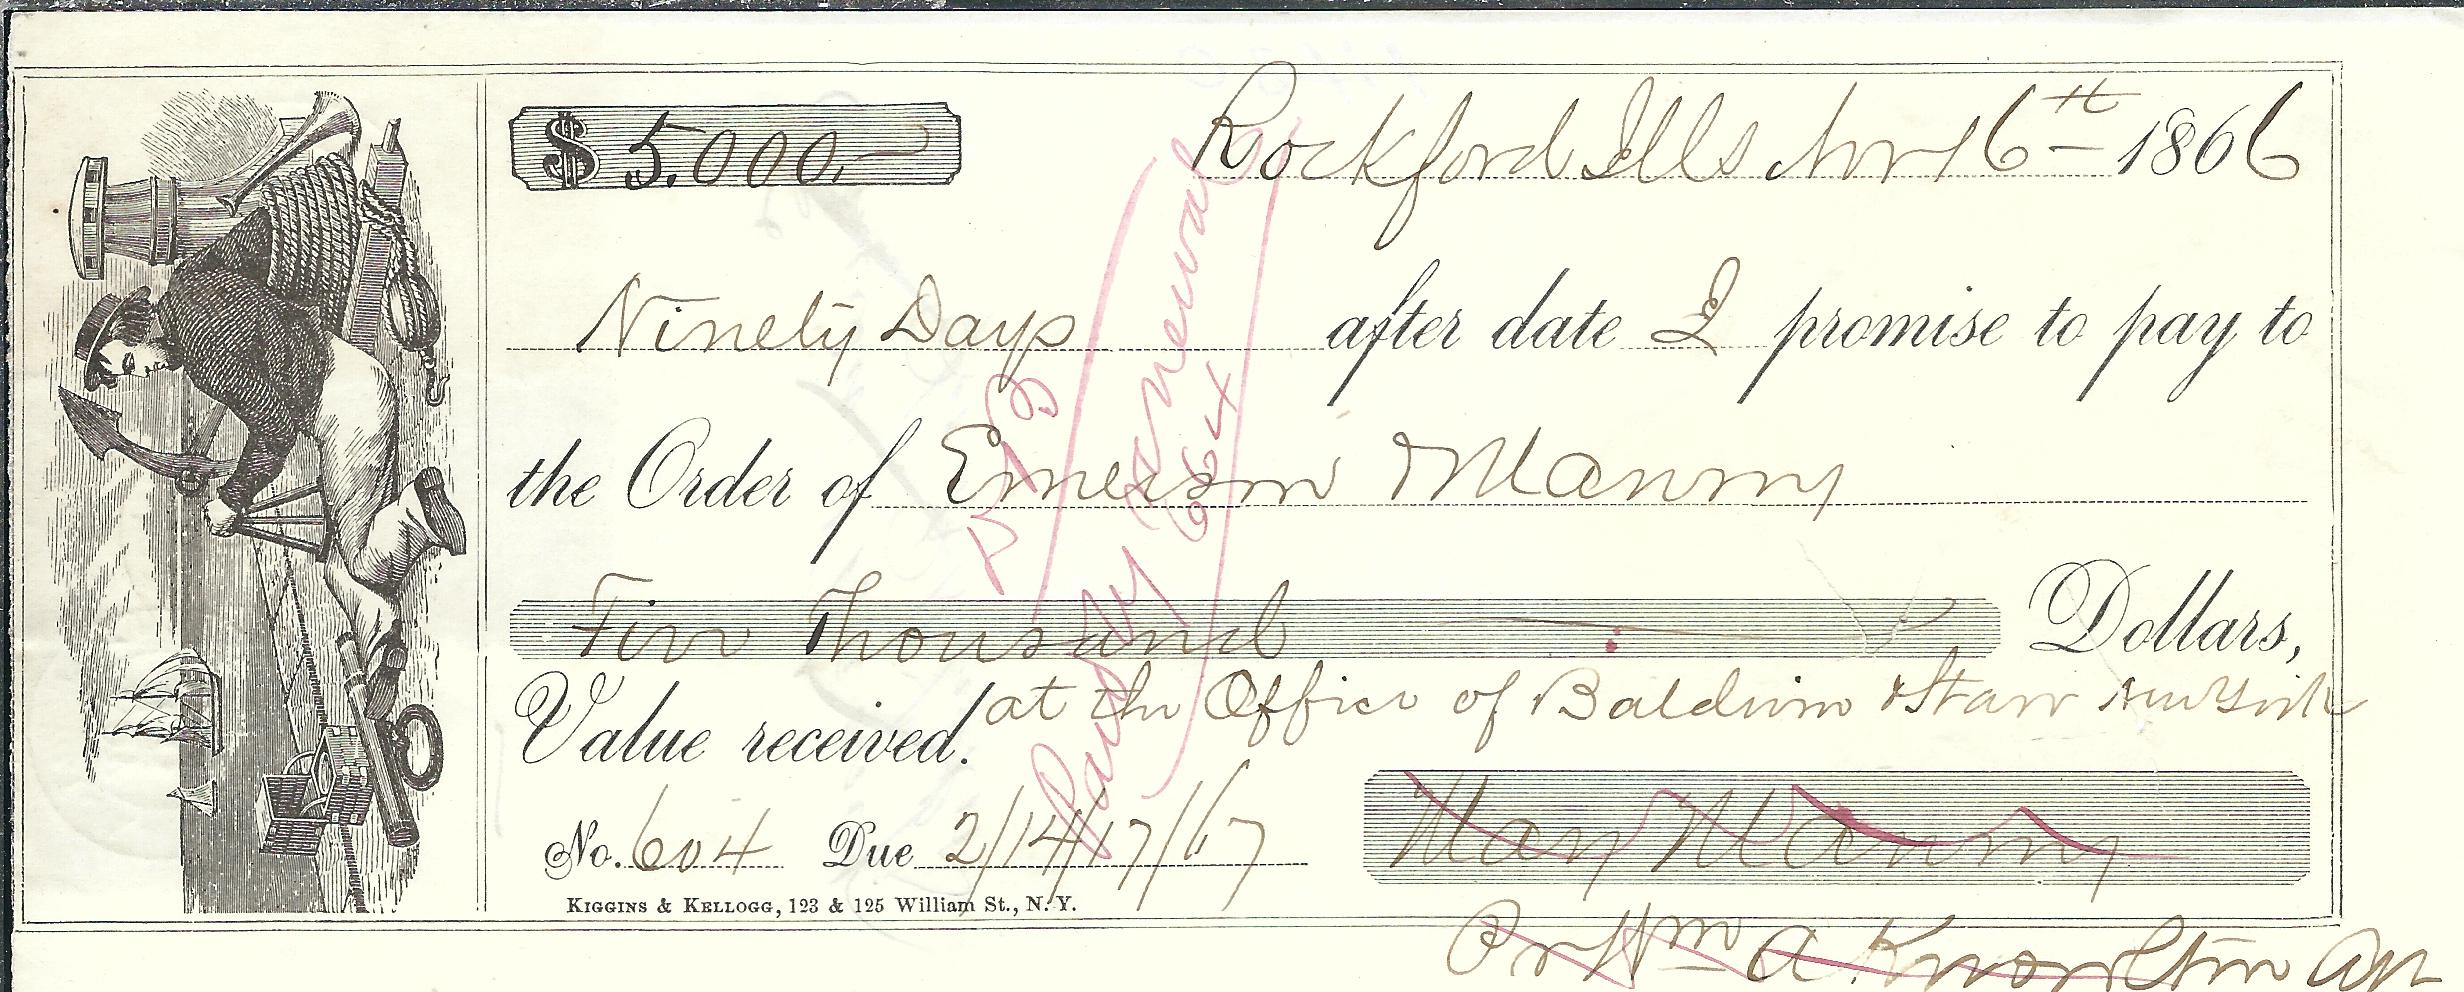 $ 5.000.—
Rockford Ills Nov 16th — 1866
Ninety Days after date I promise to pay to
the Order of Emerson Manny
Five Thousand Dollars,
Value received. at the Office of Baldwin & Starr New York
No. 604 Due 2/14/17/67
Mary Manny
Pr Wm A. Knowlton
KIGGINS & KELLOGG, 123 & 125 William St., N. Y.
Paid by Renewal
664